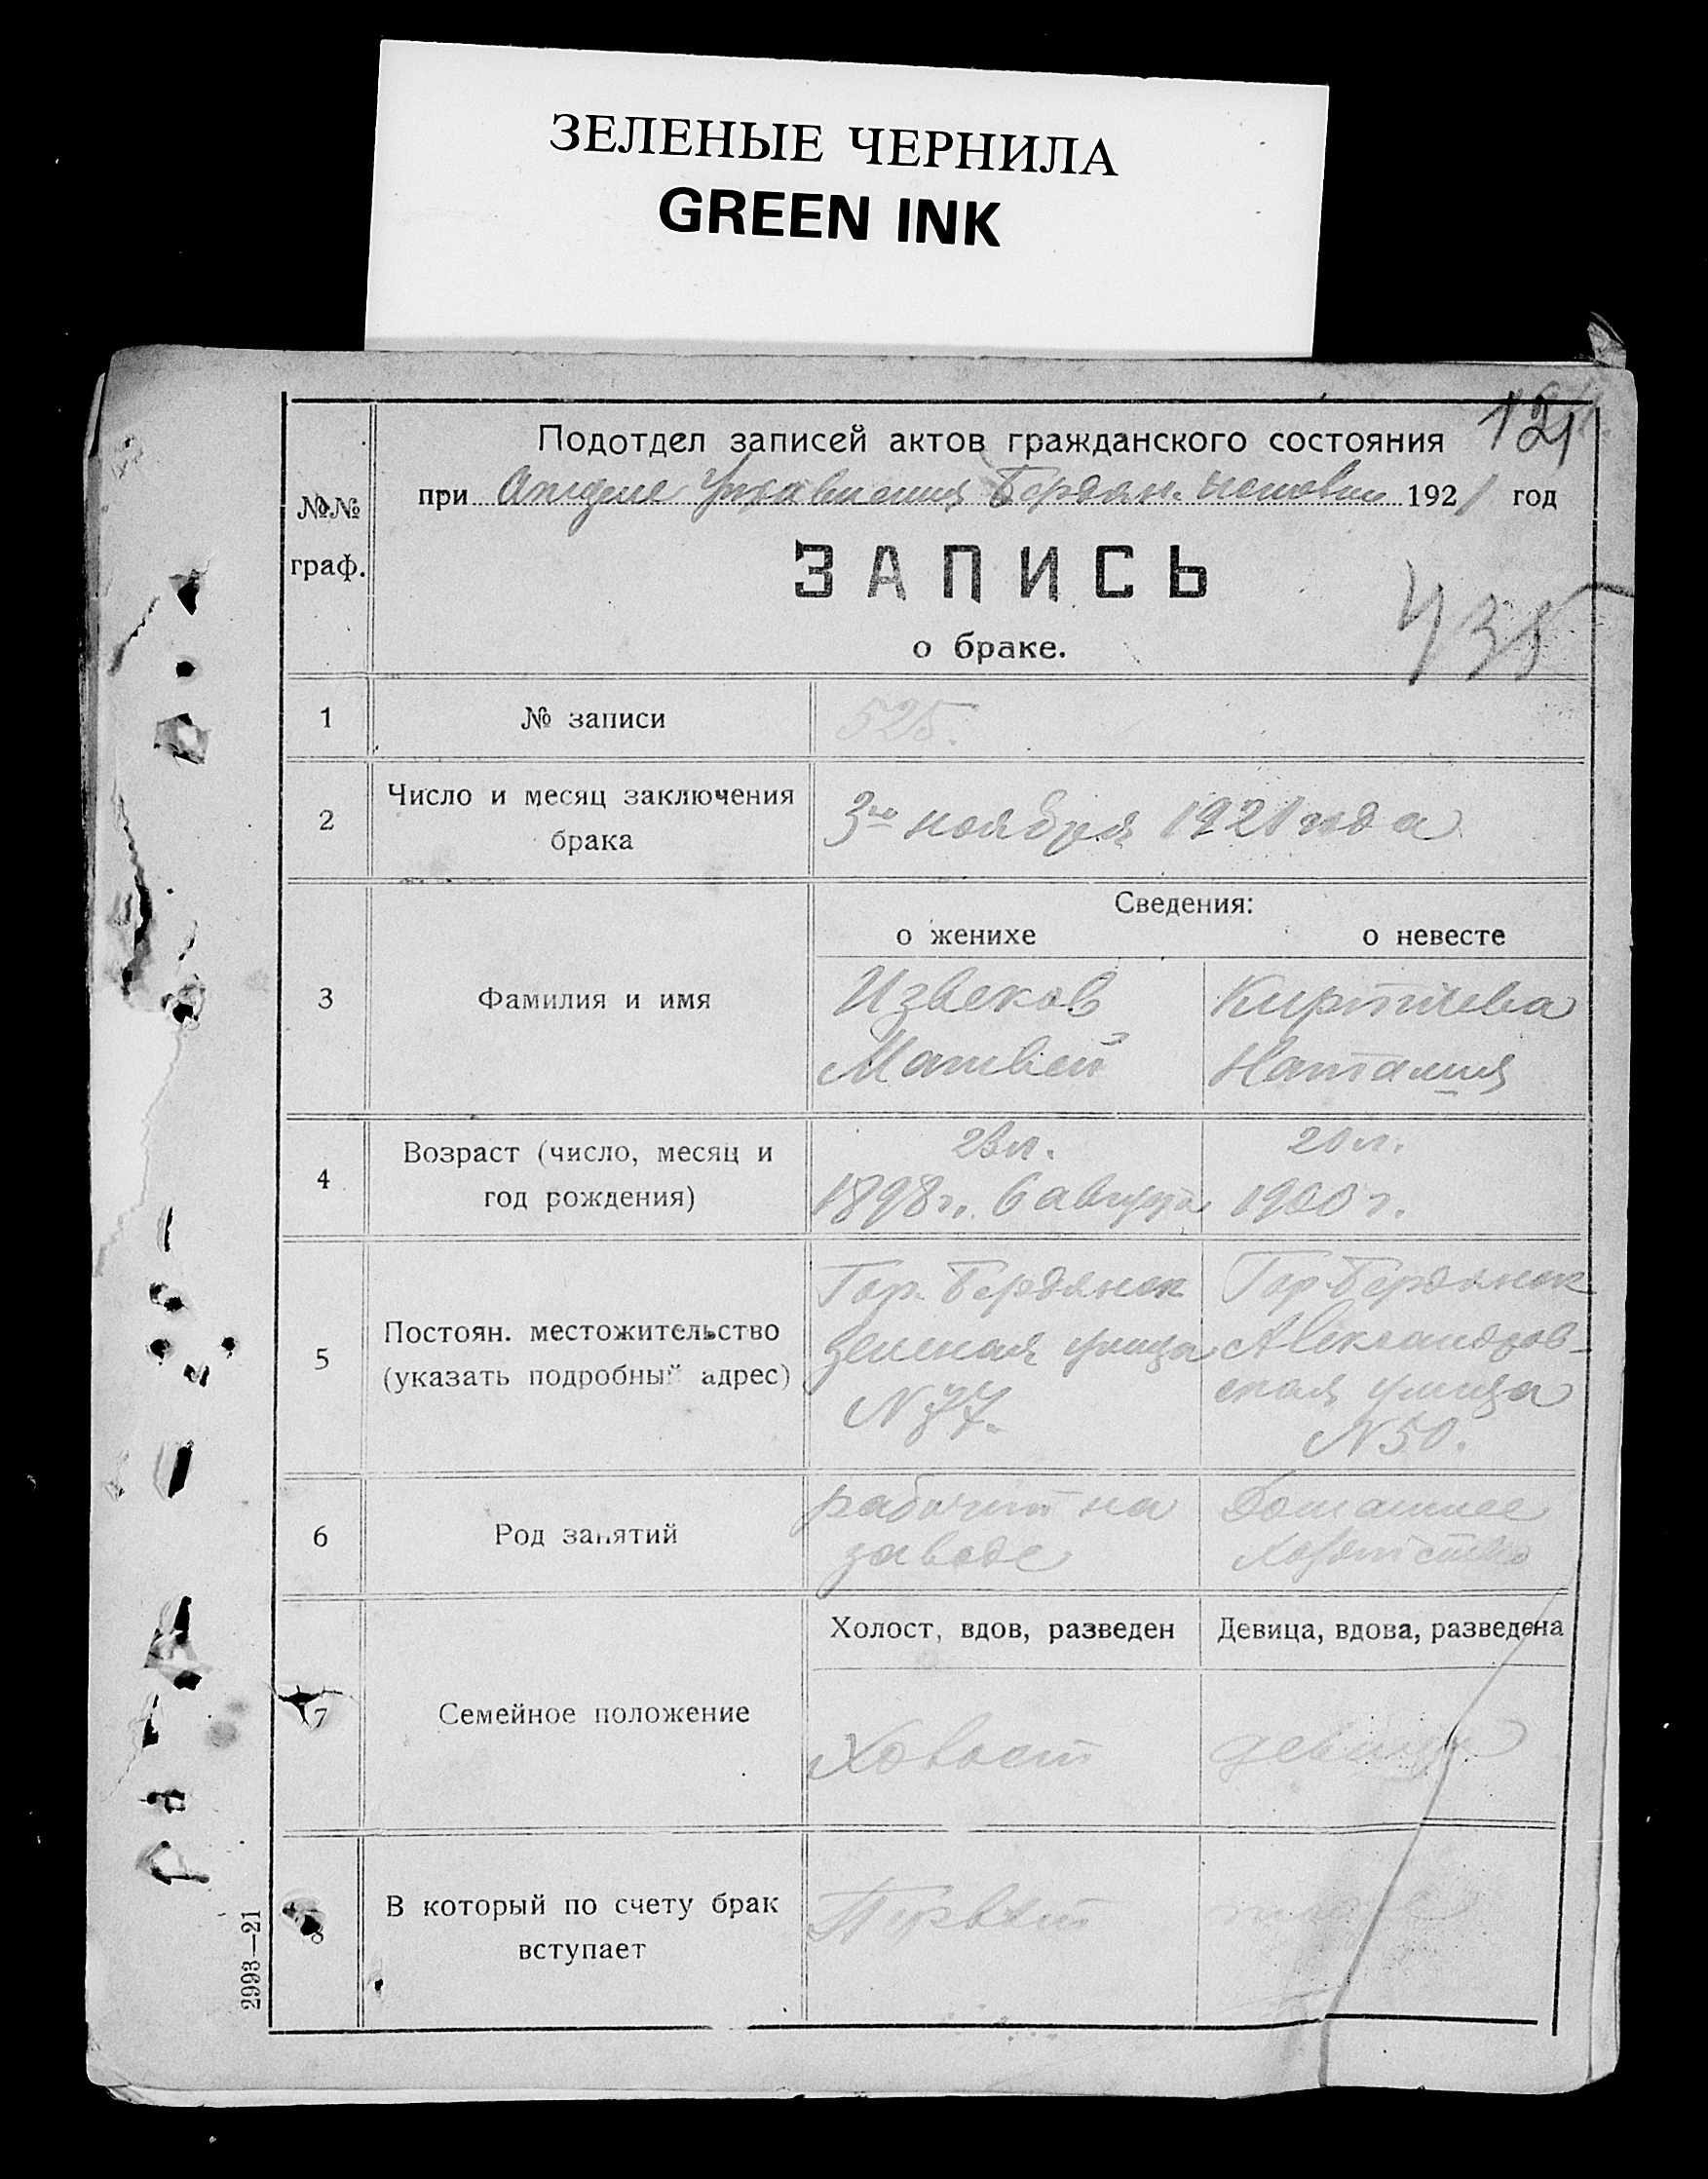 ЗЕЛЕНЫЕ ЧЕРНИЛА
GREEN INK
121
Подотдел записей актов гражданского состояния
при Отделе Управления Бердян. исполкома 1921 год
№№
граф.
ЗАПИСЬ
о браке.
435
1 № записи 525.
2 Число и месяц заключения
брака
3го ноября 1921 года
Сведения:
о женихе о невесте
3 Фамилия и имя
Извеков
Матвей
Наталия
4 Возраст (число, месяц и
год рождения)
23 л.
1898 г. 6 августа
20 л.
1900 г.
5 Постоян. местожительство
(указать подробный адрес)
Гор. Бердянск
улица
N 37.
Гор. Бердянск
Александров-
ская улица
N 50.
6 Род занятий
рабочий на
заводе
Домашнее
хозяйство
Холост, вдов, разведен Девица, вдова, разведена
7 Семейное положение
Холост
девица
8 В который по счету брак
вступает
Первый
2993—21